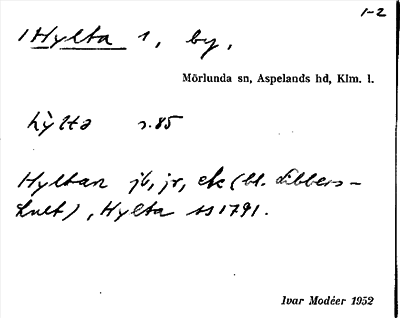 1-2
1 Hylta 1, by,
Mörlunda sn, Aspelands hd, Klm. l.
hỳlta s.85
Hyltan jb, jr, ek (bl. Libbers-
hult), Hylta ss 1791.
Ivar Modéer 1952